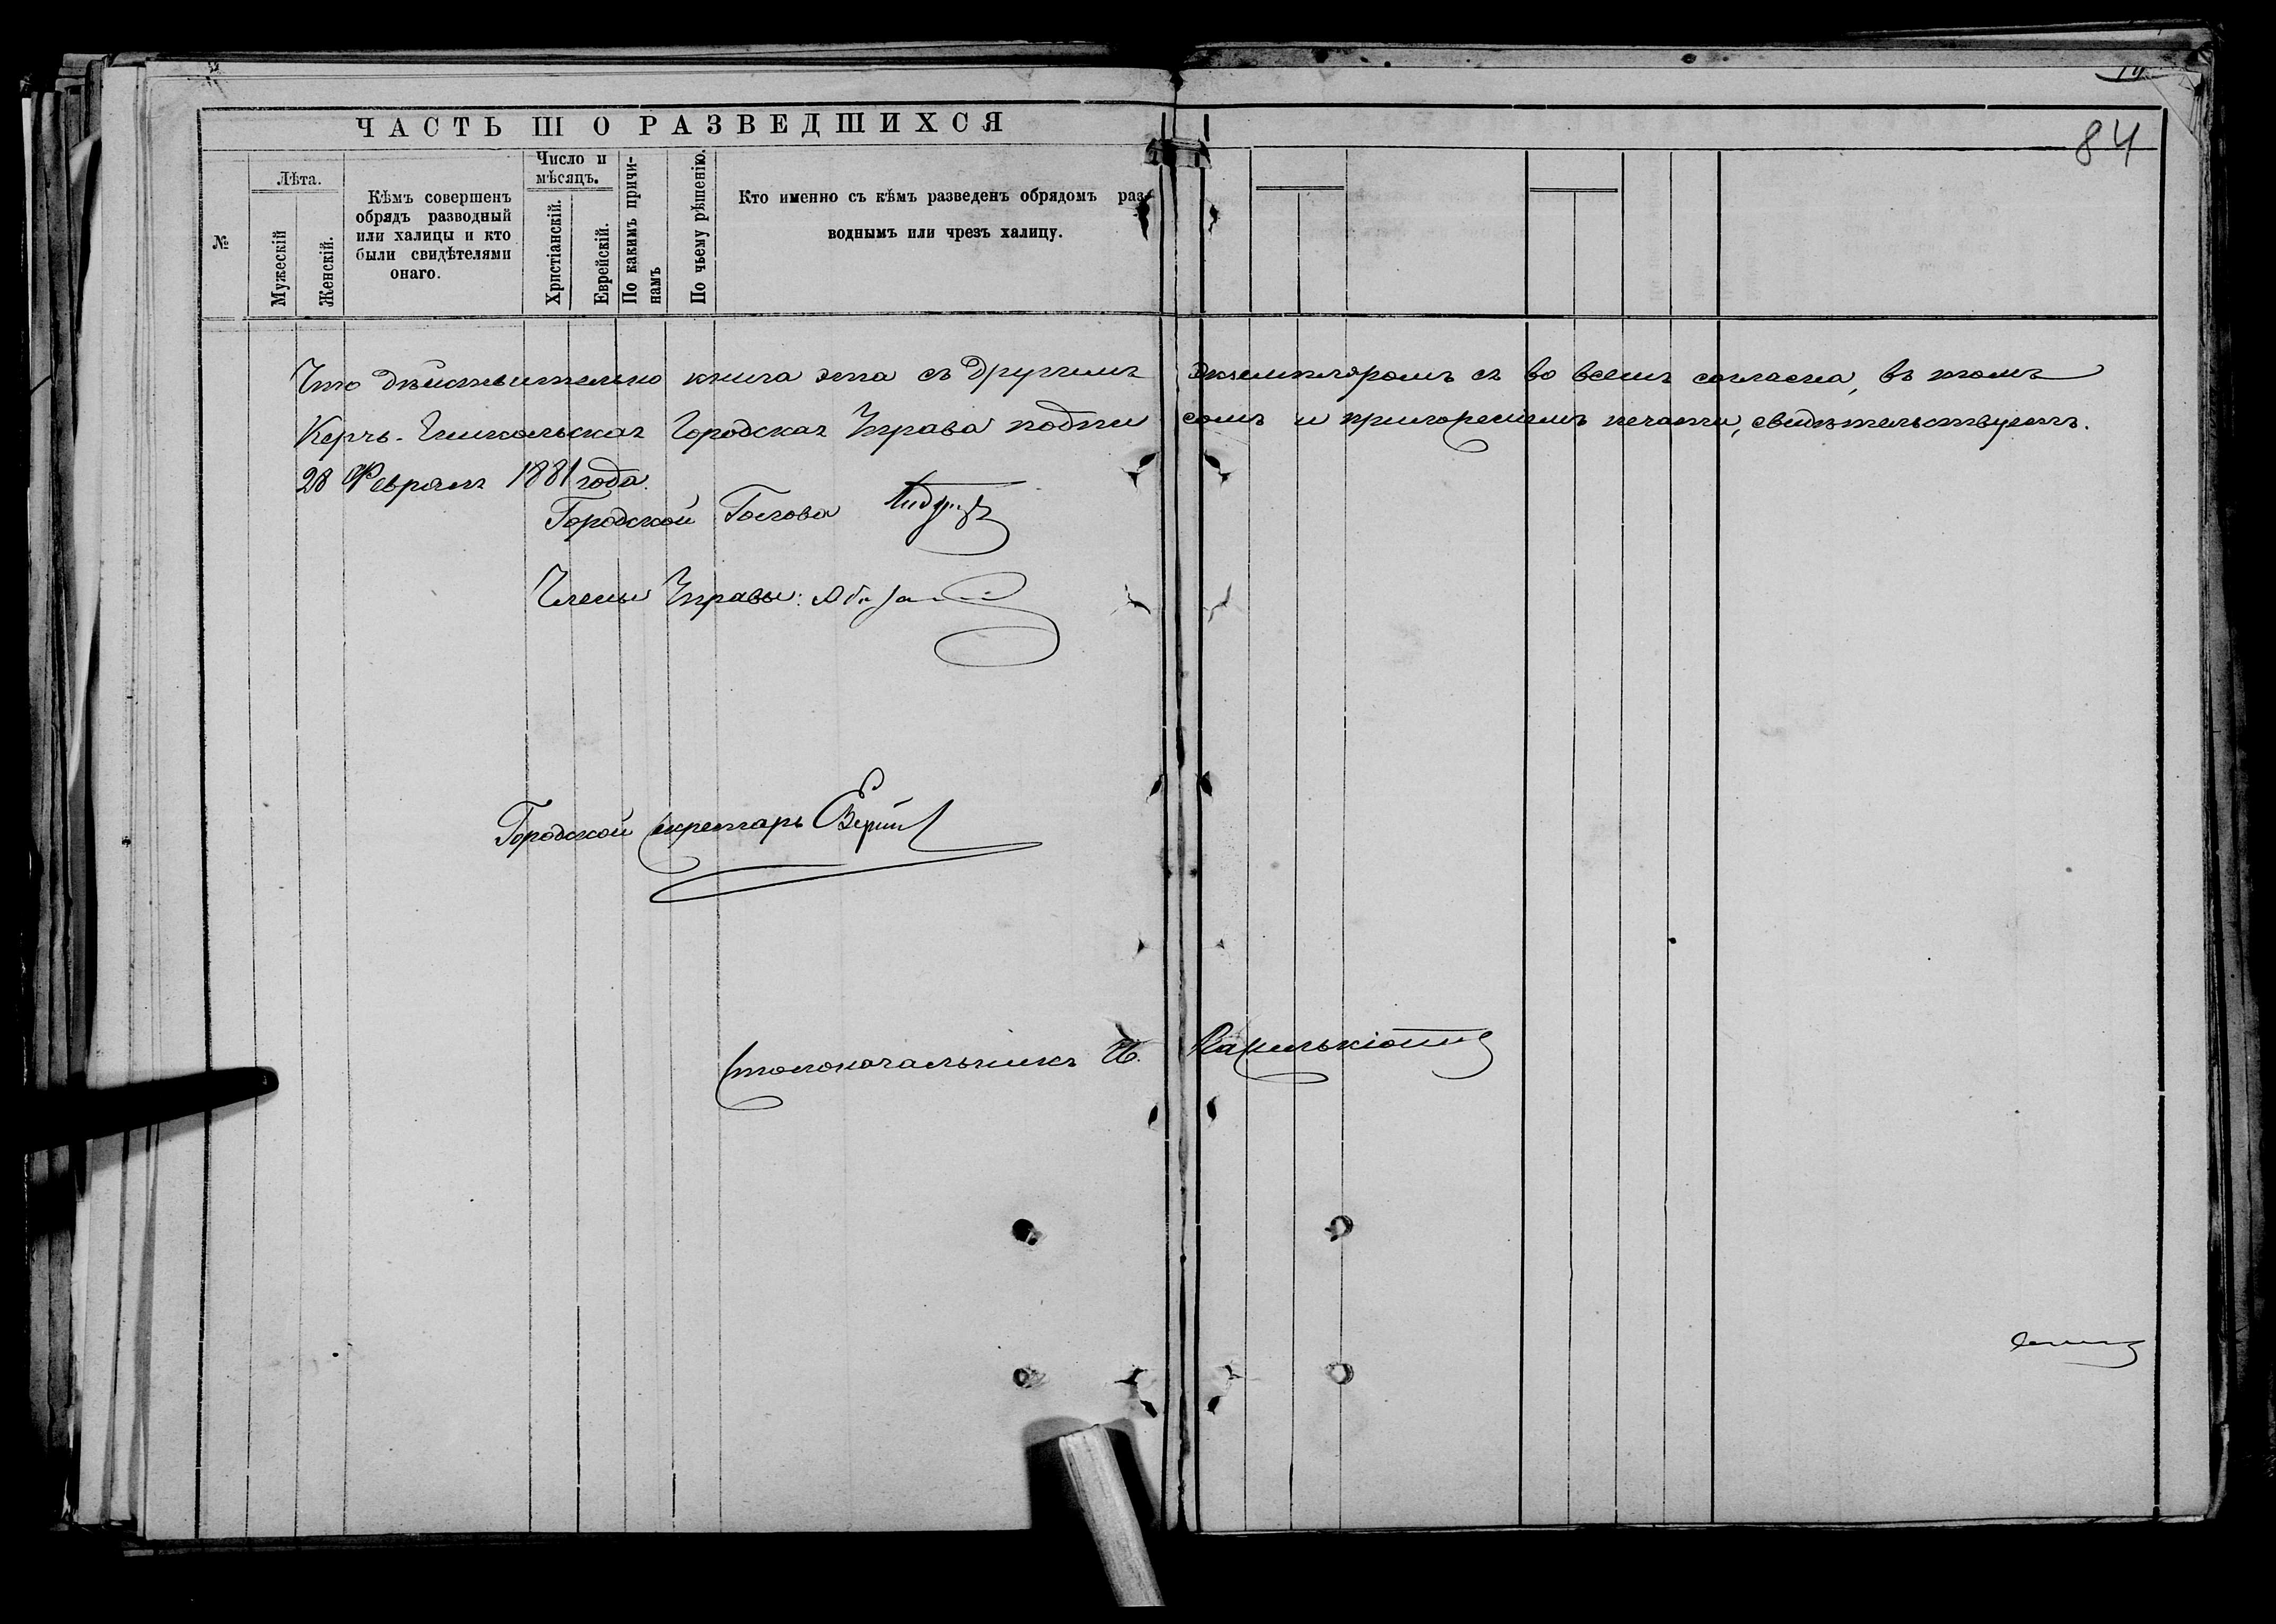 84
ЧАСТЬ III О РАЗВЕДШИХСЯ
№
Лѣта.
Мужескій
Женскій.
Кѣмъ совершенъ
обрядъ разводный
или халицы и кто
были свидѣтелями
онаго.
Число и
мѣсяцъ.
Христіанскій.
Еврейскій.
По какимъ причи-
намъ
По чьему рѣшенію.
Кто именно съ кѣмъ разведенъ обрядомъ раз-
воднымъ или чрезъ халицу.
Что дѣйствительно книга эта съ другимъ экземпляромъ во всемъ согласна, въ томъ
Керчь-Еникольская Городская Управа подписомъ и приложеніемъ печати, свидѣтельствуетъ.
28 Февраля 1881 года.
Городской Голова
Члены Управы:
Городской Секретарь
Столоначальникъ